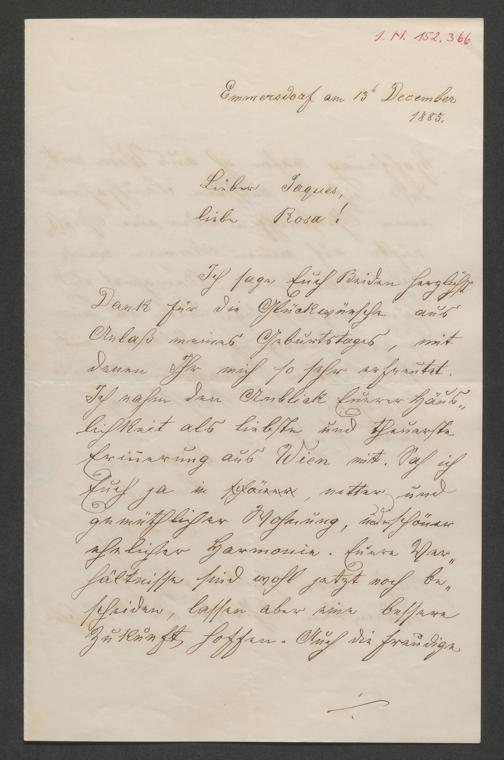 I. N. 152.366
Emmersdorf am 13t December
1885.
Lieber Jaques,
liebe Rosa!
Ich sage Euch Beiden herzlichst
Dank für die Glückwünsche aus
Anlaß meines Geburtstages, mit
denen Ihr mich so sehr erfreutet.
Ich nahm den Anblick Euerer Häus„
lichkeit als liebste und theuerste
Erinnerung aus Wien mit. Sah ich
Euch ja in netter und
gemüthlicher Wohnung, in schöner
ehelicher Harmonie. Euere Ver„
hältnisse sind wohl jetzt noch be„
scheiden, lassen aber eine bessere
Zukunft hoffen. Auch die freudige
./.